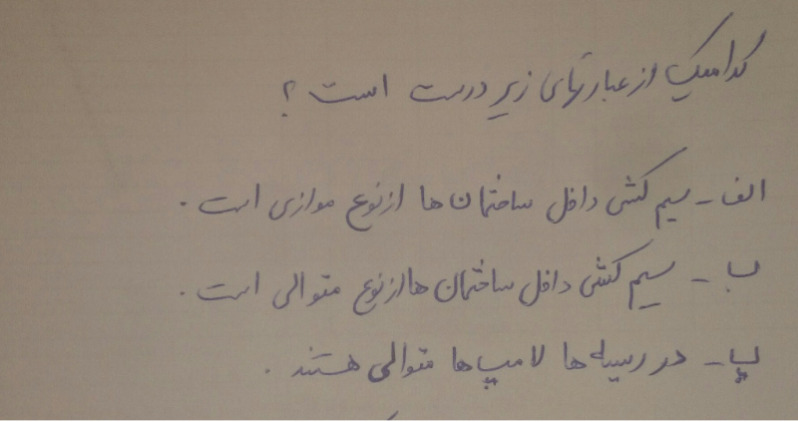 کدامیک از عبارتهای زیر درست است ؟
الف - سیم کشی داخل ساختمان ها از نوع موازی است .
ب - سیم کشی داخل ساختمان ها از نوع متوالی است .
پ - در ریسه ها لامپ ها متوالی هستند .